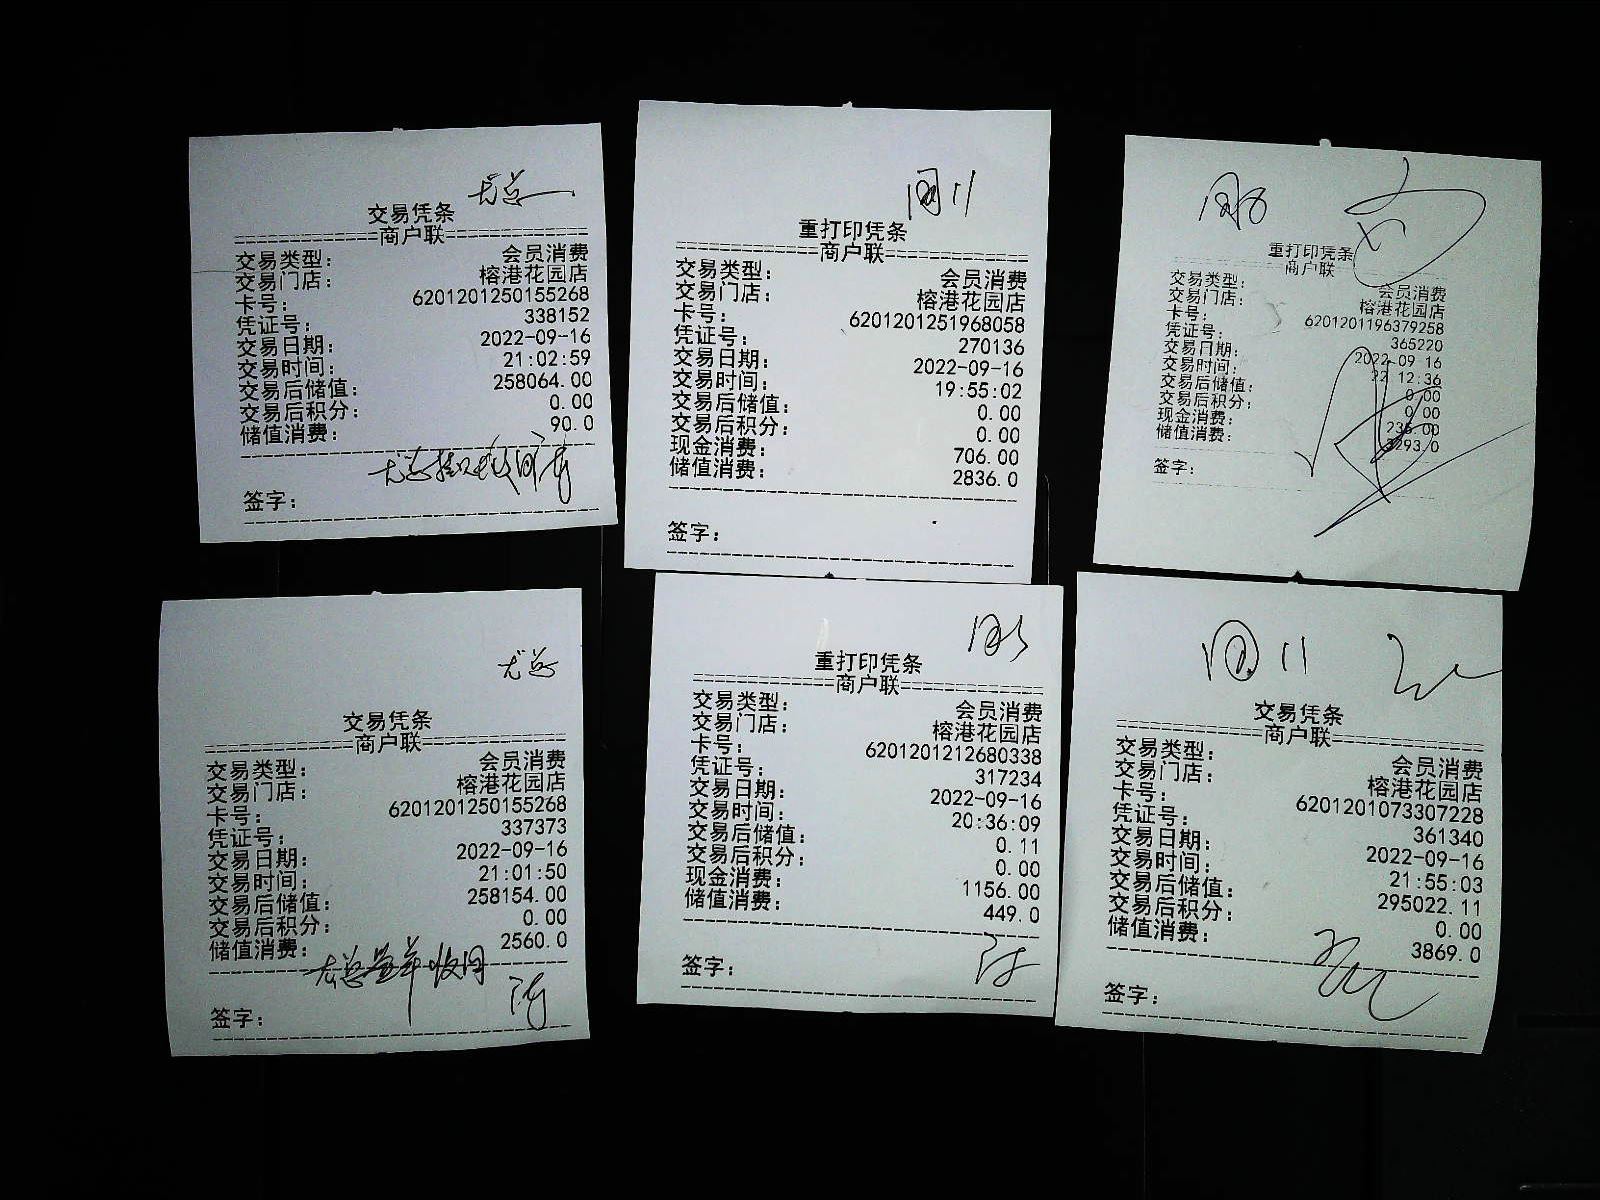 尤总
交易凭条
商户联
交易类型: 会员消费
交易门店: 榕港花园店
卡号: 6201201250155268
凭证号: 338152
交易日期: 2022-09-16
交易时间: 21:02:59
交易后储值: 258064.00
交易后积分: 0.00
储值消费: 90.0
签字:
重打印凭条
商户联
交易类型: 会员消费
交易门店: 榕港花园店
卡号: 6201201251968058
凭证号: 270136
交易日期: 2022-09-16
交易时间: 19:55:02
交易后储值: 0.00
交易后积分: 0.00
现金消费: 706.00
储值消费: 2836.0
签字:
重打印凭条
商户联
交易类型: 会员消费
交易门店: 榕港花园店
卡号: 6201201196379258
凭证号: 365220
交易日期: 2022-09-16
交易时间: 22:12:36
交易后储值: 0.00
交易后积分: 0.00
现金消费: 235.00
储值消费: 3293.0
签字:
尤总
交易凭条
商户联
交易类型: 会员消费
交易门店: 榕港花园店
卡号: 6201201250155268
凭证号: 337373
交易日期: 2022-09-16
交易时间: 21:01:50
交易后储值: 258154.00
交易后积分: 0.00
储值消费: 2560.0
签字:
重打印凭条
商户联
交易类型: 会员消费
交易门店: 榕港花园店
卡号: 6201201212680338
凭证号: 317234
交易日期: 2022-09-16
交易时间: 20:36:09
交易后储值: 0.11
交易后积分: 0.00
现金消费: 1156.00
储值消费: 449.0
签字:
交易凭条
商户联
交易类型: 会员消费
交易门店: 榕港花园店
卡号: 6201201073307228
凭证号: 361340
交易日期: 2022-09-16
交易时间: 21:55:03
交易后储值: 295022.11
交易后积分: 0.00
储值消费: 3869.0
签字: